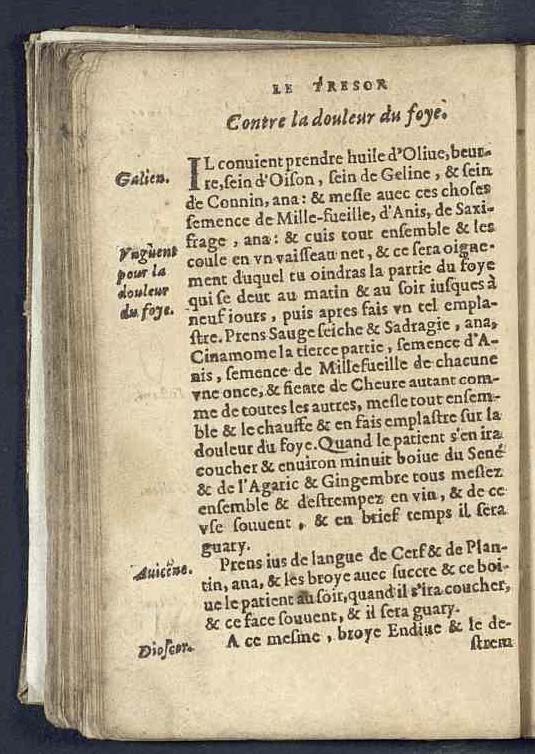 LE TRESOR
Contre la douleur du foye.
Galien.
IL conuient prendre huile d'Oliue, beur-
re, ſein d'Oiſon, ſein de Geline, & ſein
de Connin, ana: & meſle auec ces choſes
ſemence de Mille-fueille, d'Anis, de Saxi-
frage, ana: & cuis tout enſemble & les
Vnguent
pour la
douleur
du foye.
coule en vn vaiſſeau net, & ce ſera oigne-
ment duquel tu oindras la partie du foye
qui ſe deut au matin & au ſoir iuſques à
neuf iours, puis apres fais vn tel empla-
ſtre. Prens Sauge ſeiche & Sadragie, ana,
Cinamome la tierce partie, ſemence d'A-
nis, ſemence de Millefueille de chacune
vne once, & fiente de Cheure autant com-
me de toutes les autres, meſle tout enſem-
ble & le chauffe & en fais emplaſtre ſur la
douleur du foye. Quand le patient s'en ira
coucher & enuiron minuit boiue du Sené
& de l'Agaric & Gingembre tous meſlez
enſemble & deſtrempez en vin, & de ce
vſe ſouuent, & en brief temps il ſera
guary.
Auicene.
Prens ius de langue de Cerf & de Plan-
tin, ana, & les broye auec ſuccre & ce boi-
ue le patient au ſoir, quand il s'ira coucher,
& ce face ſouuent, & il ſera guary.
Dioſcor.
A ce meſme, broye Endiue & le de-
ſtrem